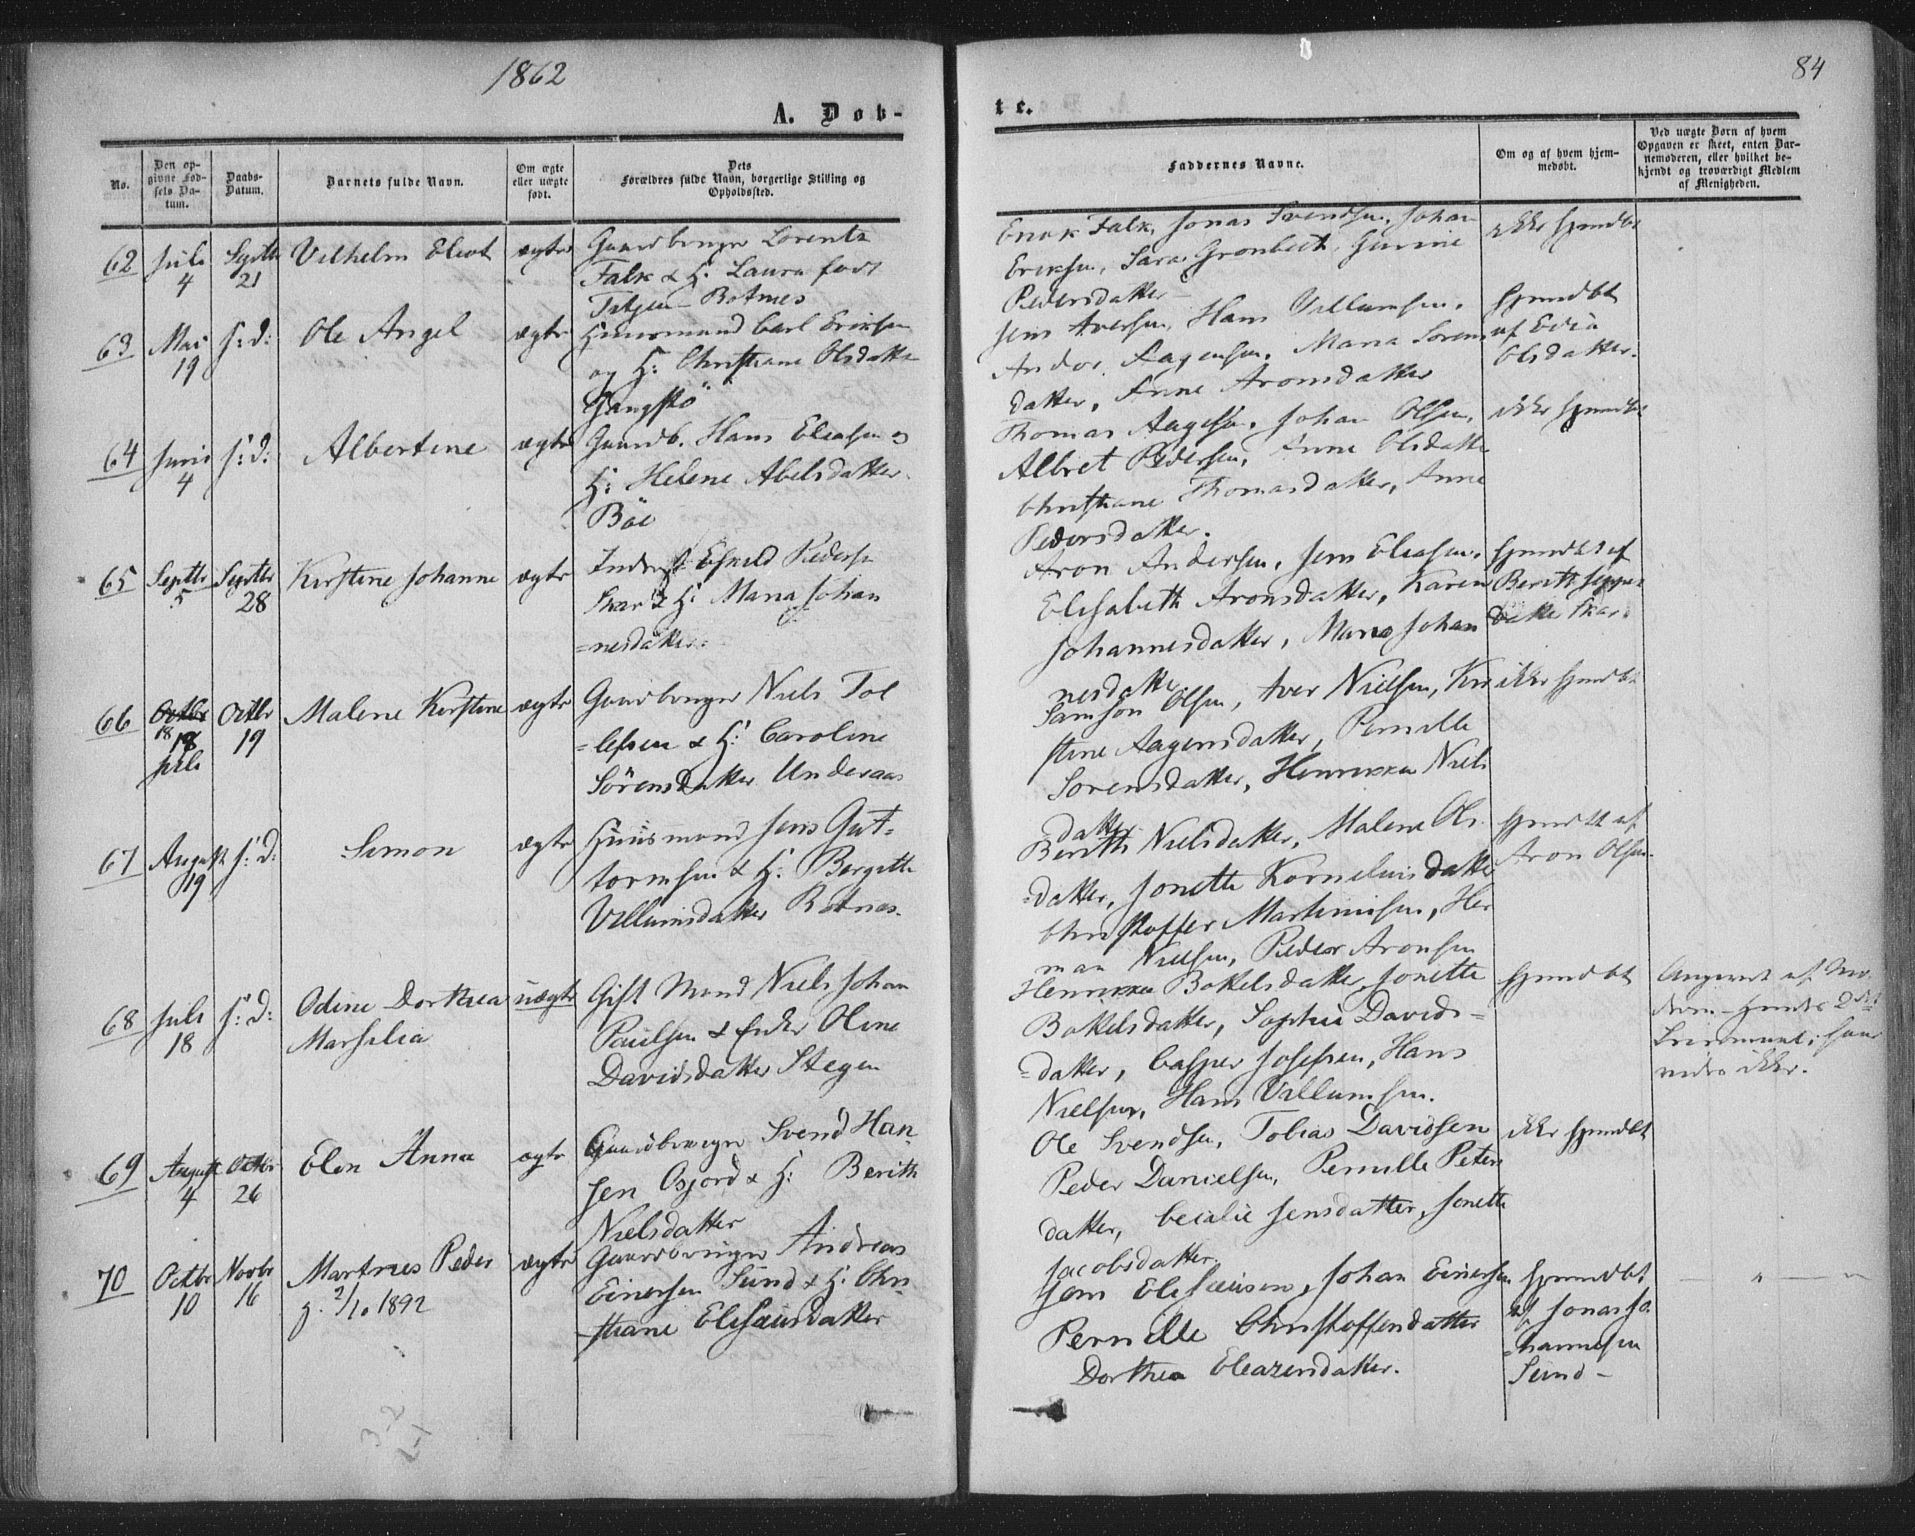 1862
84
A. Døb-
te.
No.
Den op-
givne Fød-
sels Da-
tum.
Daabs-
Datum.
Barnets fulde Navn.
Om ægte
eller uægte
født.
Dets
Forældres fulde Navn, borgerlige Stilling og
Opholdssted.
Faddernes Navne.
Om og af hvem hjem-
medøbt.
Ved uægte Børn af hvem
Opgaven er skeet, enten Bar-
nemoderen, eller hvilket be-
kjendt og troværdigt Medlem
af Menigheden.
62 Juli 4 Septbr 21 Vilhelm Eliot ægte
Gaardbruger Lorentz
Falk & H: Laura født
Botnes
Falk, Jonas Svendsen, Johan
Eriksen, Sara Grønbeck,
Pedersdatter
ikke hjemdøbt
63 Mai 19 s: d: Ole Angel ægte
Huusmand Carl Eriksen
og H: Christiane Olsdatter
Gangstö
Jens Iversen, Hans Villumsen,
Maria Sorens
datter, Anne Aronsdatter
hjemdøbt
af
Olsdatter.
64 Juni 4 s: d: Albertine ægte
Gaardb. Hans Eliasen og
H: Helene Abelsdatter
Böe
Thomas Aagesen, Johan Olsen,
Albret Pedersen, Anne Olsdatter
Christiane Thomasdatter, Anne
Pedersdatter.
ikke hjemdøbt
65 Septbr 5 Septbr 28 Kirstine Johanne ægte
Pedersen
Skar & H: Maria Johan
=nesdatter.
Aron Andersen, Jens Eliasen,
Elisabeth Aronsdatter, Karen
Johannesdatter, Maria Johan
nesdatter
hjemdøbt af
Berith Jeppes
datter Skar.
66 Octbr 18 18 Juli Octbr 19 Malene Kirstine ægte
Gaardbruger Niels Tol
=lefsen & H: Caroline
Sörensdatter Underaas
Samson Olsen, Iver Nielsen, Kir
stine Aagensdatter, Pernille
Sorensdatter, Henrikka Niels
datter
ikke hjemdøbt
67 August 19 s: d: Simon ægte
Huusmand Jens Gut-
tormsen & H: Bergitte
Villumsdatter Botnes.
Berith Nielsdatter, Malene Ols
=datter, Jonette Korneliusdatter
Christoffer Martinusen, Her
man Nielsen, Peder Aronsen
hjemdøbt af
Aron Olsen.
68 Juli 18 s: d: Odine Dorthea
Marsilia
uægte
Gift Mand Niels Johan
Paulsen & Enke Oline
Davidsdatter Stegen
Henrikka Bokelsdatter, Jonette
Bokelsdatter, Sophie Davids=
=datter, Casper Josefsen, Hans
Nielsen, Hans Villumsen.
hjemdøbt
Angivet af Mo-
deren - hendes 2det
Leiermaal; hans
vides ikke.
69 August 4 Octbr 26 Elen Anna ægte
Gaardbruger Svend Han-
sen Osjord & H: Berith
Nielsdatter
Ole Svendsen, Tobias Davidsen
Peder Danielsen, Pernille Peters
datter, Cecilie Jensdatter, Jonette
Jacobsdatter.
ikke hjemdøbt
70 Octbr 10 Novbr 16 Martnus Peder
g. 2/10 1892
ægte
Gaardbruger Andreas
Einersen Sund & H: Chri-
stiane Elisæusdatter
Jens Elisæusen, Johan Einersen
Pernille Christoffersdatter
Dorthea Eleazersdatter.
hjemdøbt
af Jonas Jo-
hannesen
Sund -